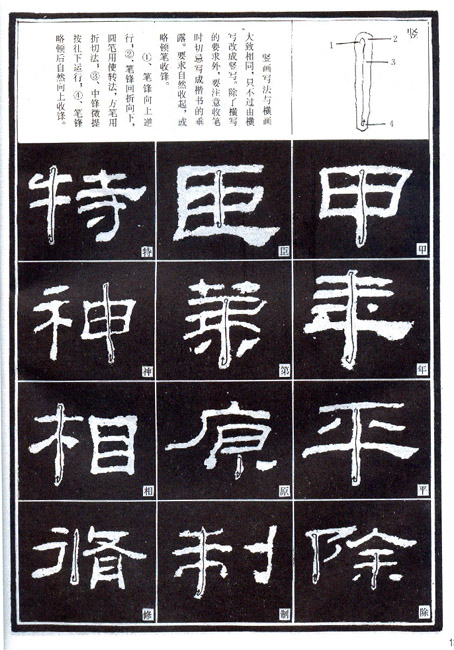 竖
1
2
3
4
竖画写法与横画
大致相同，只不过由横
写改成竖写。除了横写
的要求外，要注意收笔
时切忌写成楷书的垂
露。要求自然收起，或
略顿笔收锋。
①、笔锋向上逆
行，②、笔锋回折向下，
圆笔用使转法，方笔用
折切法，③、中锋微提
按往下运行，④、笔锋
略顿后自然向上收锋。
甲
甲
年
年
平
平
除
除
臣
臣
第
第
原
原
制
制
特
特
神
神
相
相
修
修